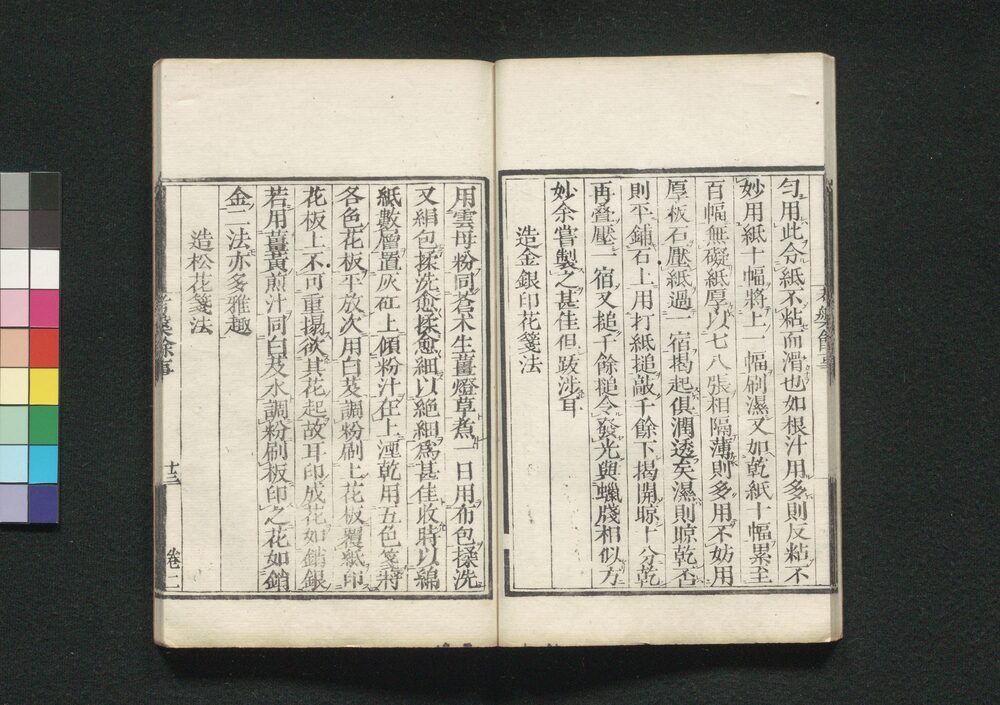 勻用此分紙不粘而滑也如根汁用多則反粘不
妙用紙十幅將上一幅刷濕又加乾紙十幅累至
百幅無礙紙厚以七八張相隔薄則多用不妨用
厚板石壓紙過一宿揭起俱潤透矣濕則晾乾否
則平鋪石上用打紙搥敲千餘下揭開晾十分乾
再疊壓一宿又搥千餘搥令發光與蠟牋相似方
妙余嘗製之甚佳但跋涉耳
造金銀印花箋法
用雲母粉同蒼术生薑燈草煮一日用布包揉洗
又絹包揉洗愈揉愈細以絶細爲甚佳收時以綿
紙數層置灰矼上傾粉汁在上湮乾用五色箋將
各色花板平放次用白芨調粉刷上花板覆紙印
花板上不可重搨欲其花起故耳印成花如銷銀
若用薑黃煎汁同白芨水調粉刷板印之花如銷
金二法亦多雅趣
造松花箋法
考槃餘事
十三
卷二